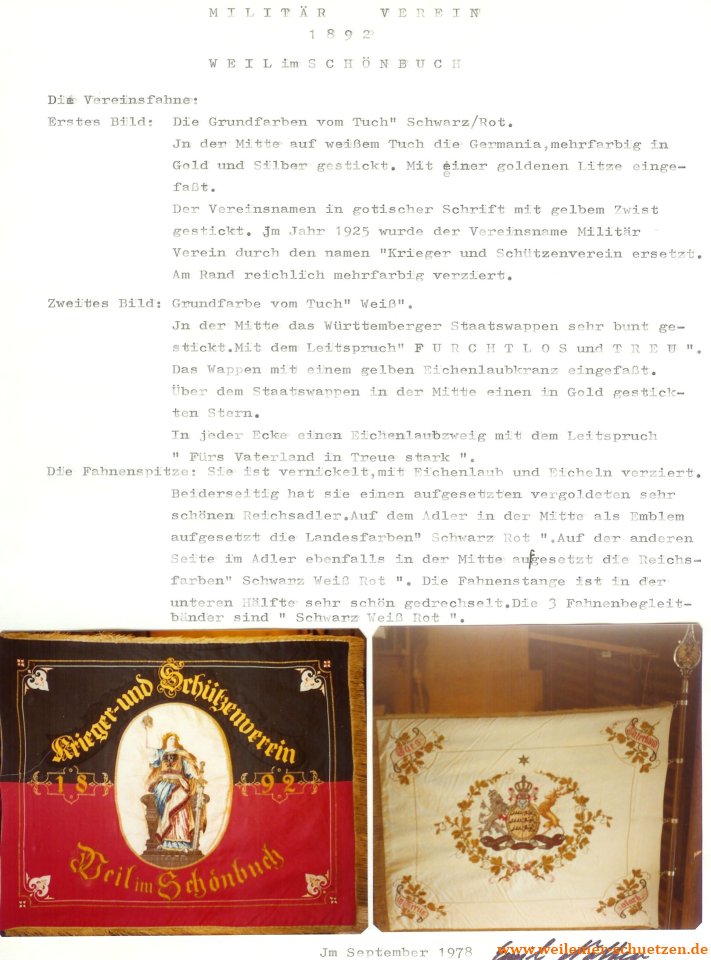 MILITÄR VEREIN
1892
WEIL im SCHÖNBUCH
Die Vereinsfahne:
Erstes Bild: Die Grundfarben vom Tuch" Schwarz/Rot.
Jn der Mitte auf weißem Tuch die Germania,mehrfarbig in
Gold und Silber gestickt. Mit einer goldenen Litze einge-
faßt.
Der Vereinsnamen in gotischer Schrift mit gelbem Zwist
gestickt. Jm Jahr 1925 wurde der Vereinsname Militär
Verein durch den namen "Krieger und Schützenverein ersetzt.
Am Rand reichlich mehrfarbig verziert.
Zweites Bild: Grundfarbe vom Tuch" Weiß".
Jn der Mitte das Württemberger Staatswappen sehr bunt ge-
stickt.Mit dem Leitspruch" FURCHTLOS und TREU ".
Das Wappen mit einem gelben Eichenlaubkranz eingefaßt.
Über dem Staatswappen in der Mitte einen in Gold gestick-
ten Stern.
In jeder Ecke einen Eichenlaubzweig mit dem Leitspruch
" Fürs Vaterland in Treue stark ".
Die Fahnenspitze: Sie ist vernickelt,mit Eichenlaub und Eicheln verziert.
Beiderseitig hat sie einen aufgesetzten vergoldeten sehr
schönen Reichsadler.Auf dem Adler in der Mitte als Emblem
aufgesetzt die Landesfarben" Schwarz Rot ".Auf der anderen
Seite im Adler ebenfalls in der Mitte aufgesetzt die Reichs-
farben" Schwarz Weiß Rot ". Die Fahnenstange ist in der
unteren Hälfte sehr schön gedrechselt.Die 3 Fahnenbegleit-
bänder sind " Schwarz Weiß Rot ".
Krieger-und Schützenverein
18 92
Weil im Schönbuch
Fürs
Vaterland
in Treue
stark
Jm September 1978
www.weilemer-schuetzen.de